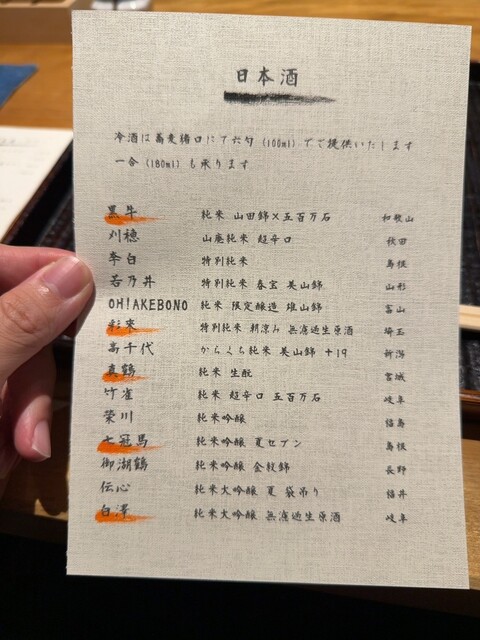 日本酒
冷酒は蕎麦猪口にて六勺(100ml)でご提供いたします
一合(180ml)も承ります
黒牛 純米 山田錦×五百万石 和歌山
刈穂 山廃純米 超辛口 秋田
李白 特別純米 島根
若乃井 特別純米 春宝 美山錦 山形
OH!AKEBONO 純米 限定醸造 雄山錦 富山
彩來 特別純米 朝涼み 無濾過生原酒 埼玉
高千代 からくち純米 美山錦 +19 新潟
真鶴 純米 生酛 宮城
竹雀 純米 超辛口 五百万石 岐阜
榮川 純米吟醸 福島
七冠馬 純米吟醸 夏セブン 島根
御湖鶴 純米吟醸 金紋錦 長野
伝心 純米大吟醸 夏 袋吊り 福井
白澤 純米大吟醸 無濾過生原酒 岐阜